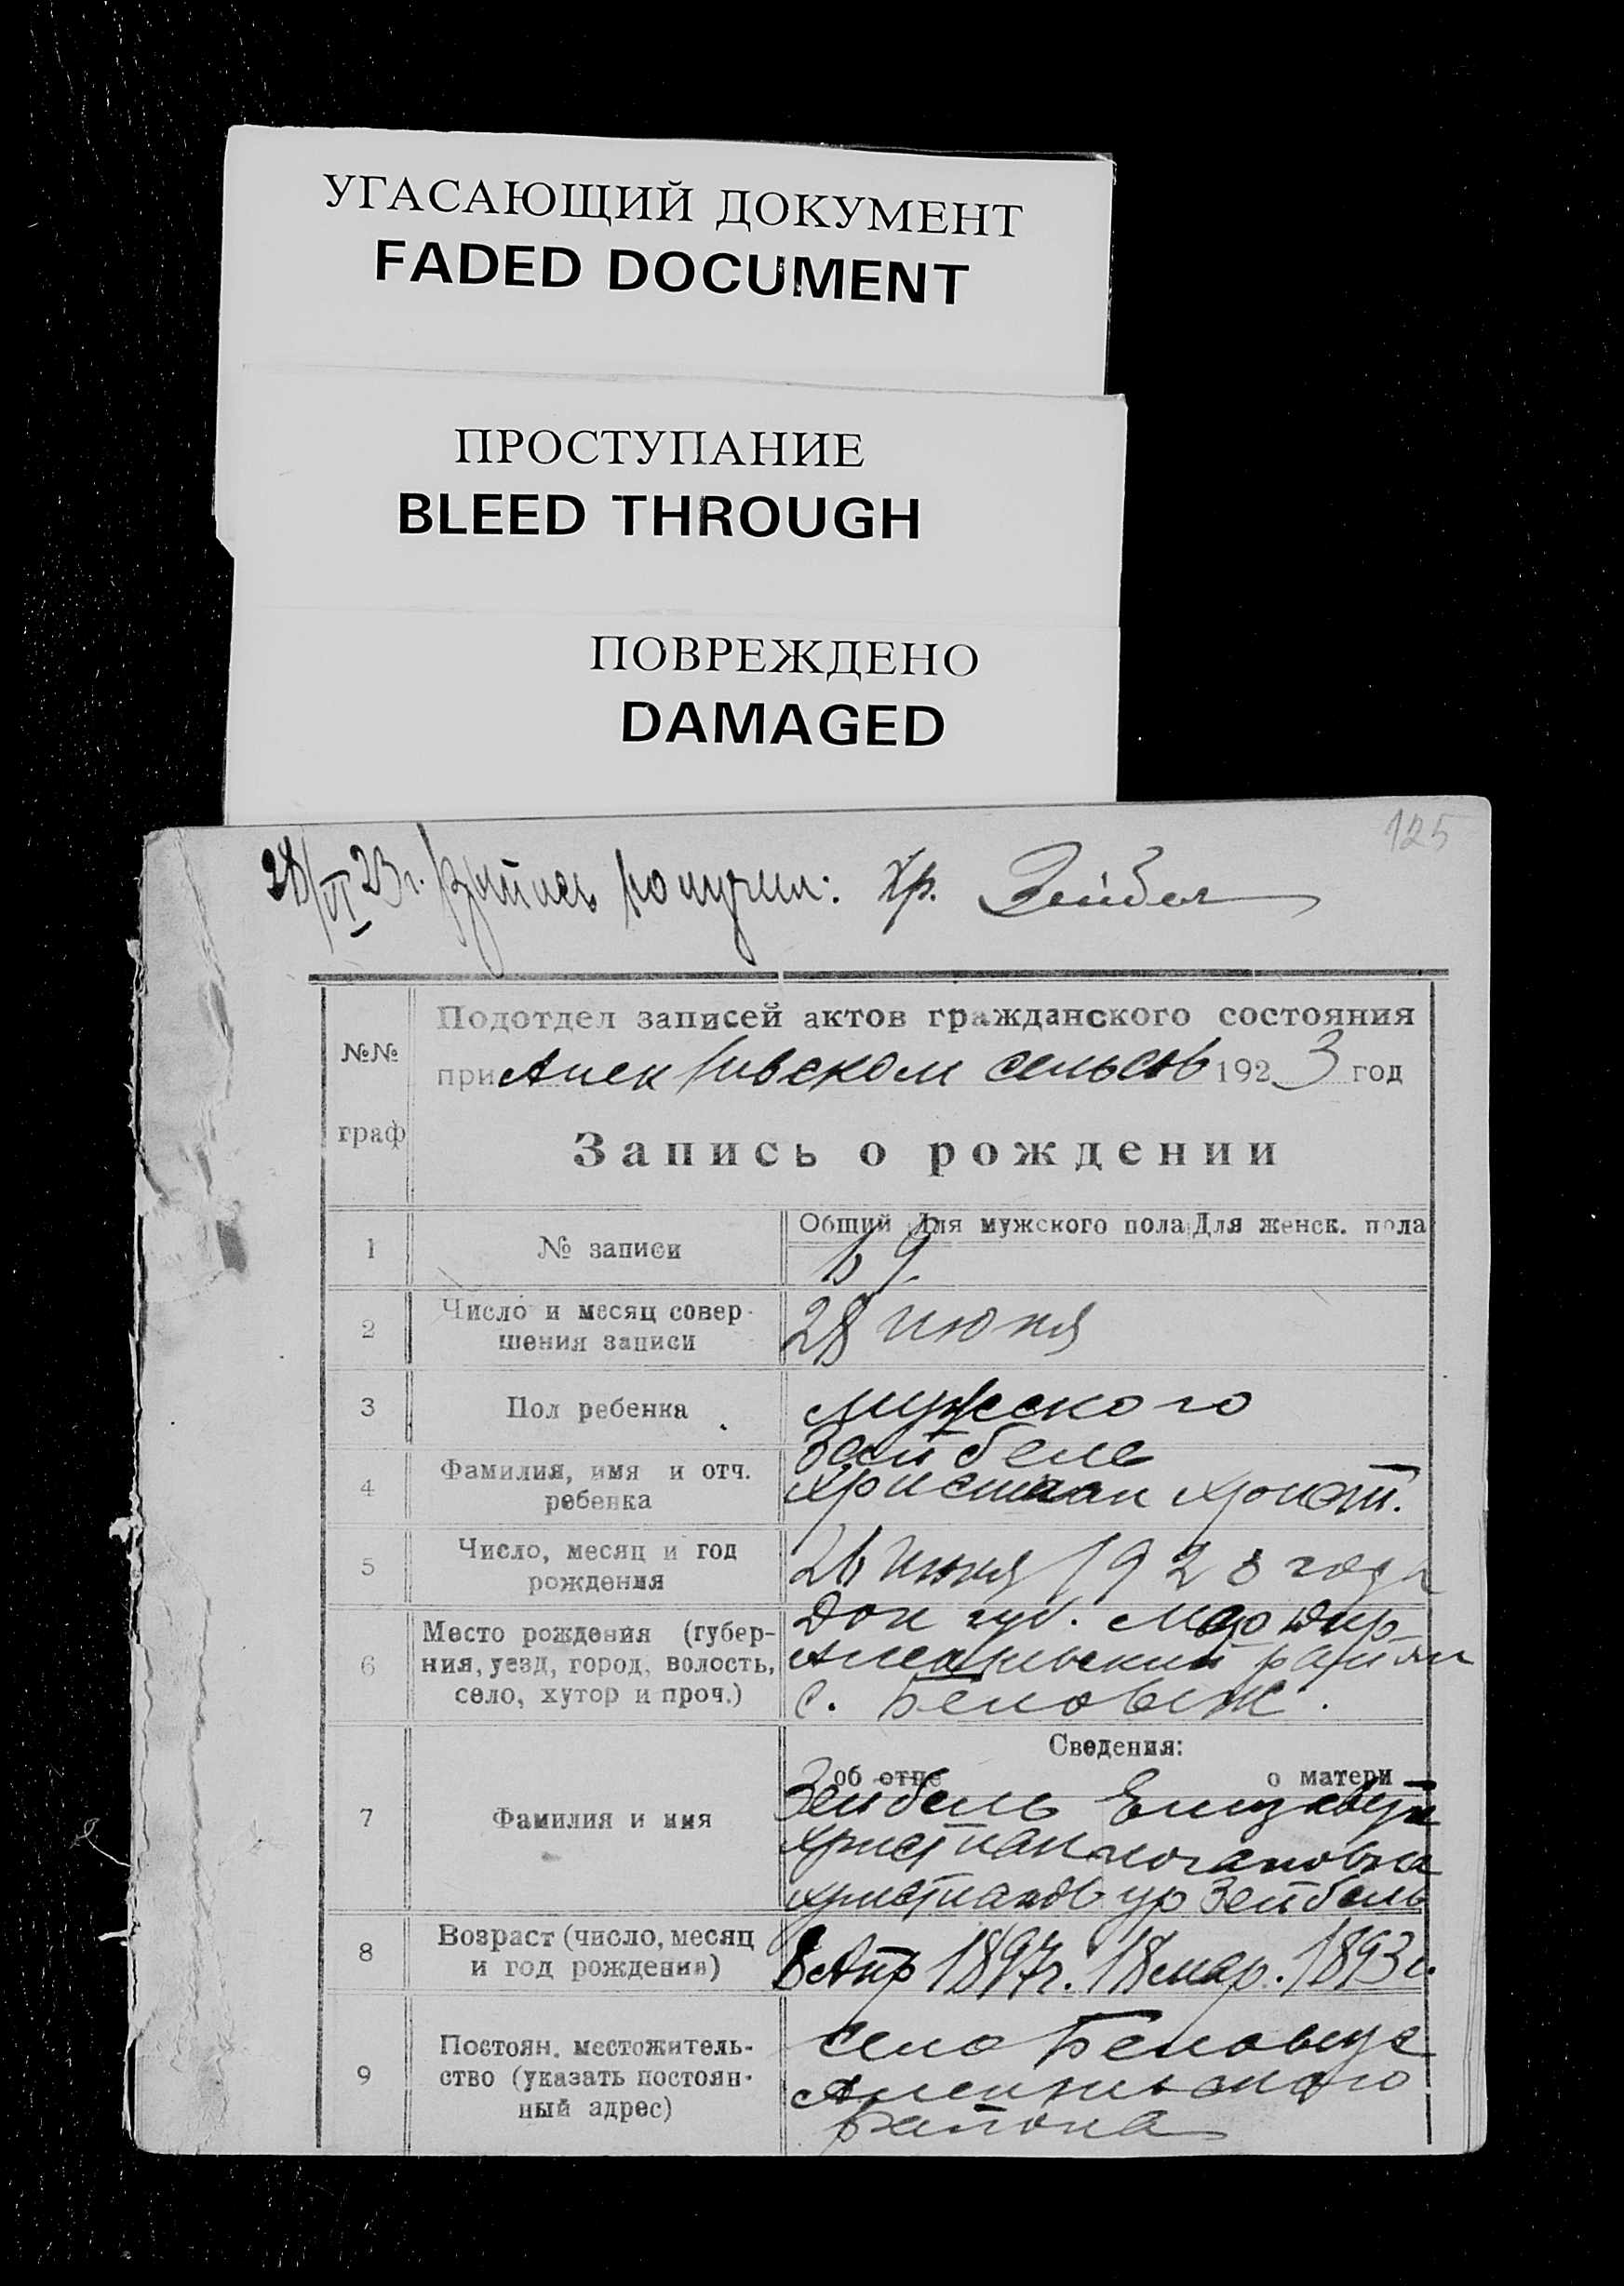 УГАСАЮЩИЙ ДОКУМЕНТ
FADED DOCUMENT
ПРОСТУПАНИЕ
BLEED THROUGH
ПОВРЕЖДЕНО
DAMAGED
125
28/VI 23г. получил: Хр. Зейбел
№№ граф
Подотдел записей актов гражданского состояния
при сельсов 1923 год
Запись о рождении
Общий Для мужского пола Для женск. пола
1 № записи
2 Число и месяц совер-
шения записи
28 июня
3 Пол ребенка
мужеского
4 Фамилия, имя и отч.
ребенка
Зейбель
Христиан Христ.
5 Число, месяц и год
рождения
26 июня 1923 года
6 Место рождения (губер-
ния, уезд, город, волость,
село, хутор и проч.)
Дон губ.
район
с. Беловеж.
Сведения:
об отце о матери
7 Фамилия и имя
Зейбель Елизавета
Христиан
Христианов ур Зейбель
8 Возраст (число, месяц
и год рождения)
8 Апр 1897г. 18 мар. 1893 г.
9 Постоян. местожитель-
ство (указать постоян-
ный адрес)
село
района